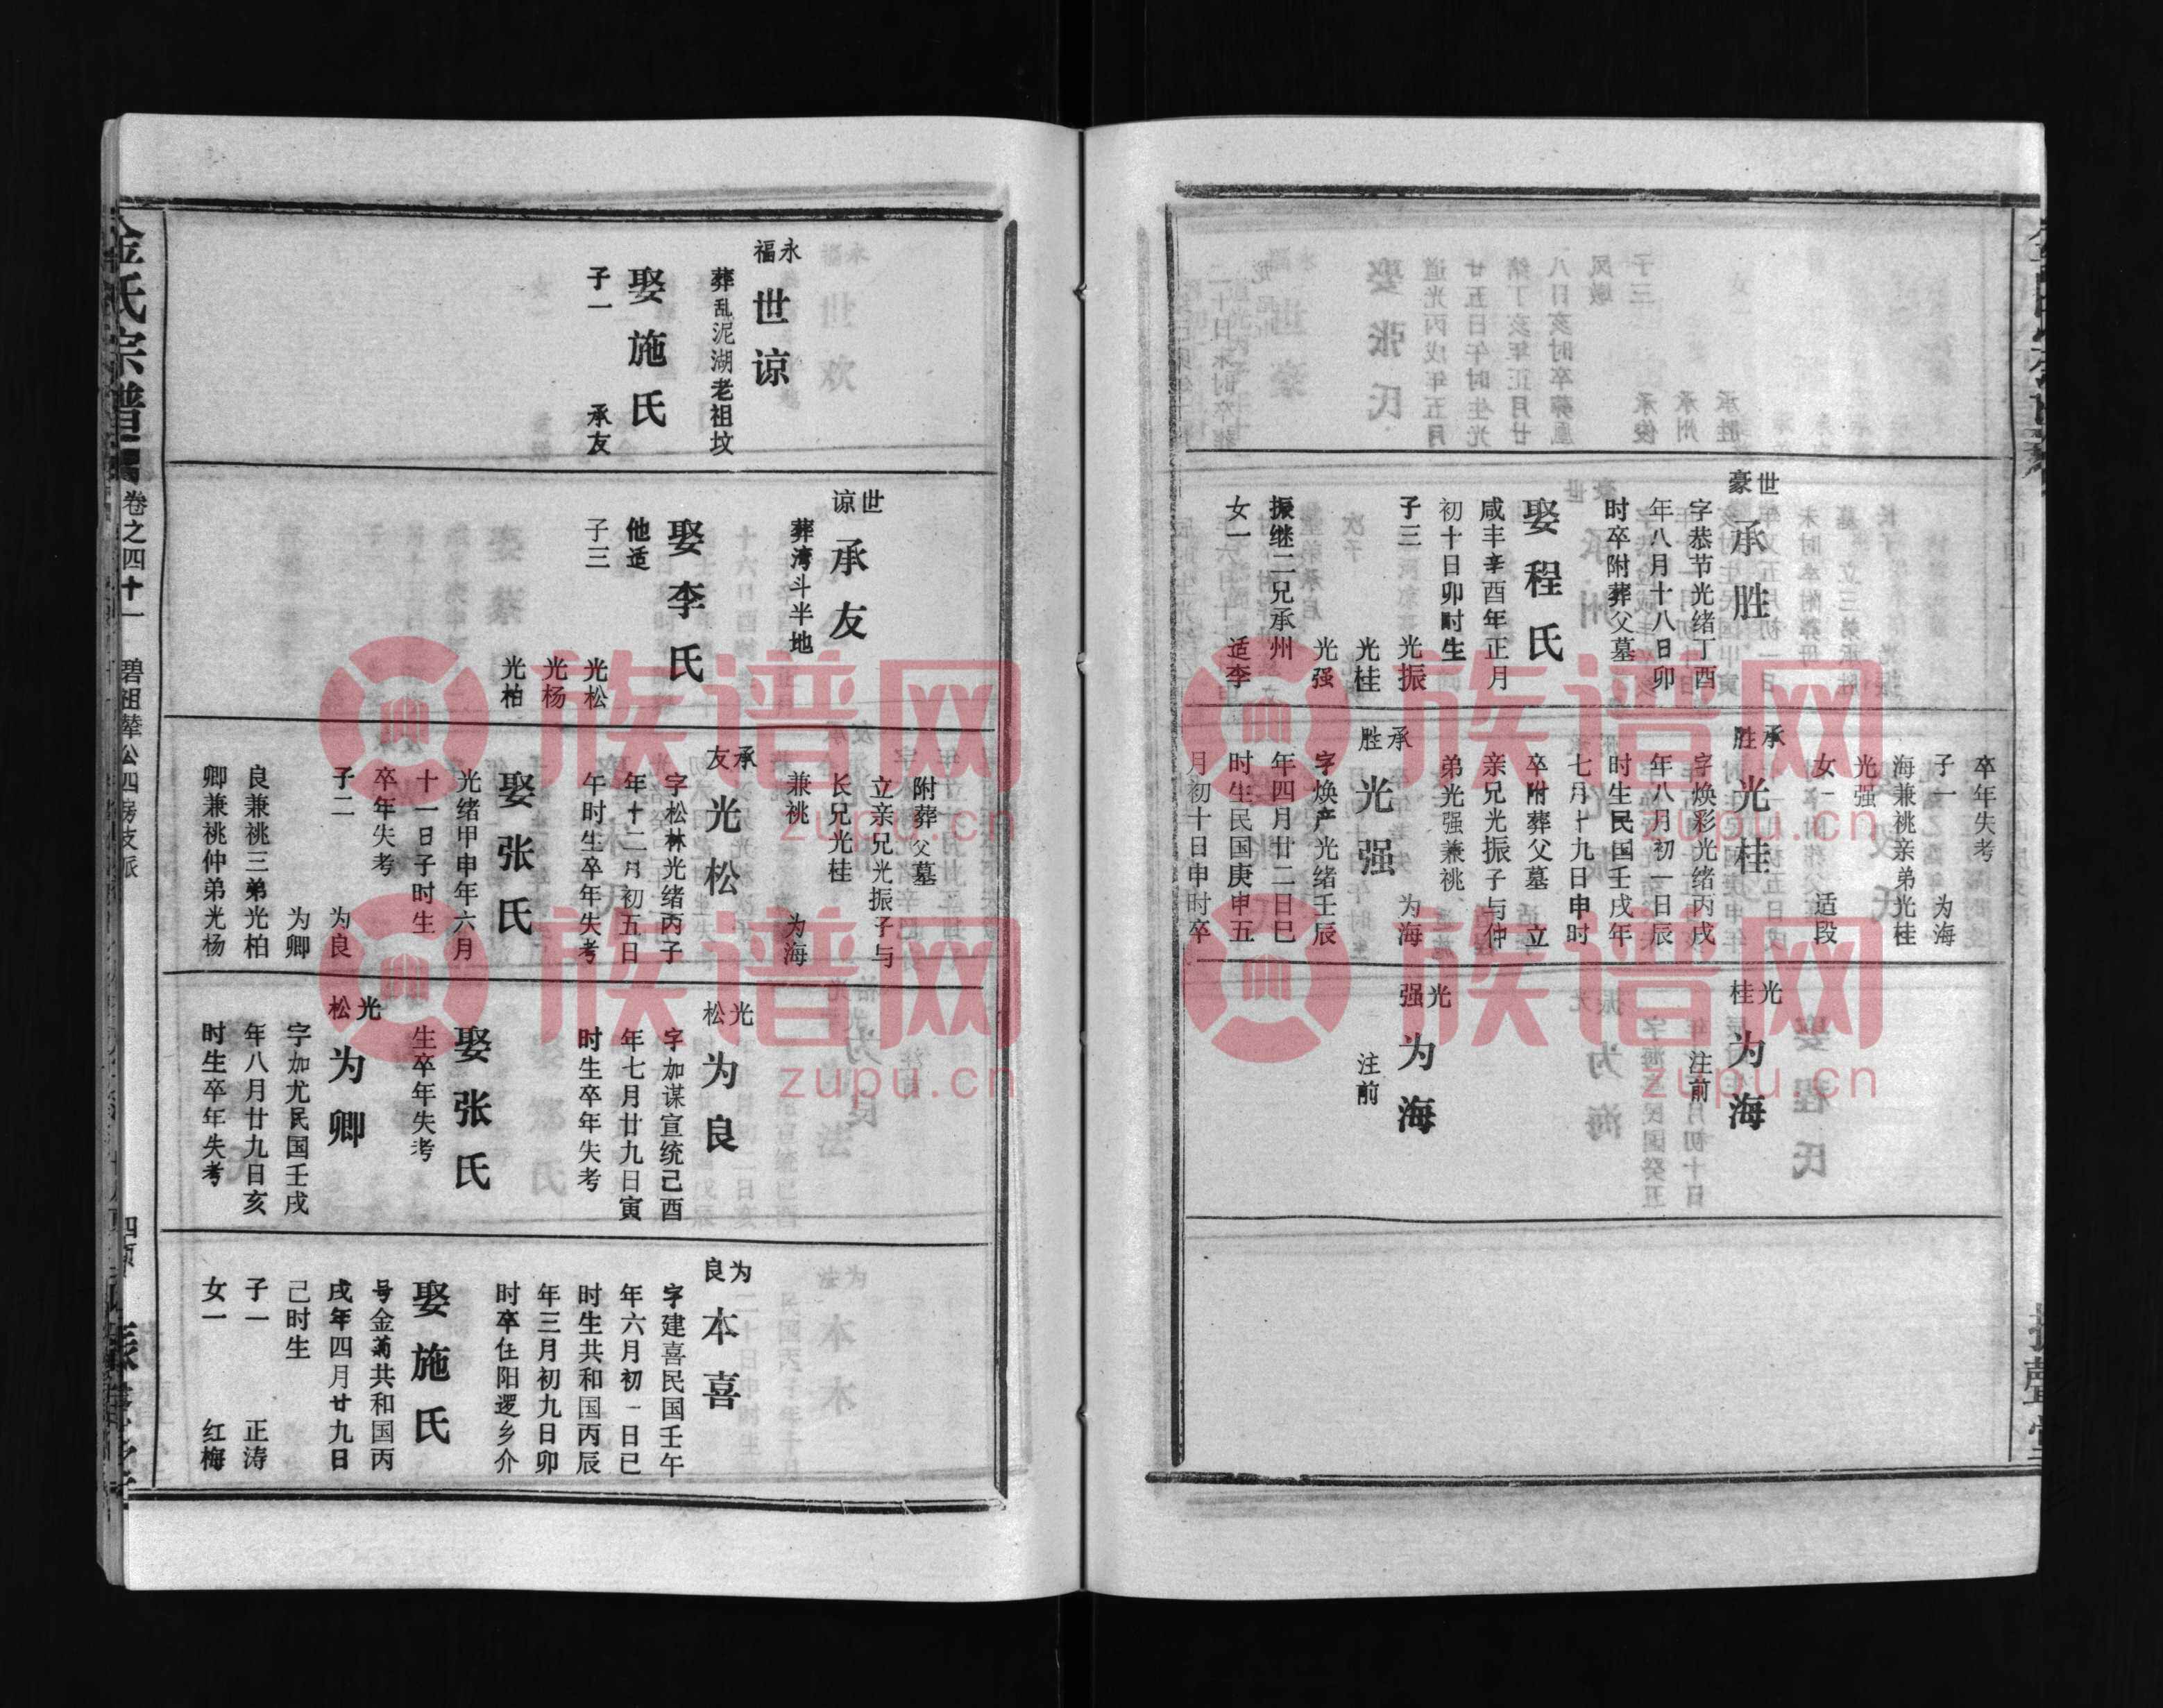 世豪
承胜
字恭节光绪丁酉
年八月十八日卯
时卒附葬父墓
娶程氏
咸丰辛酉年正月
初十日卯时生
子三 光振
光桂
光强
振继二兄承州
女一 适李
卒年失考
子一 为海
海兼祧亲弟光桂
光强
女一 适段
承胜
光桂
字焕彩光绪丙戌
年八月初一日辰
时生民国壬戌年
七月十九日申时
卒附葬父墓 立
亲兄光振子与仲
弟光强兼祧
为海
承胜
光强
字焕产光绪壬辰
年四月廿二日巳
时生民国庚申五
月初十日申时卒
光桂
为海
注前
光强
为海
注前
永福
世谅
葬乱泥湖老祖坟
娶施氏
子一 承友
世谅
承友
葬湾斗半地
娶李氏
他适
子三 光松
光杨
光柏
附葬父墓
立亲兄光振子与
长兄光桂
兼祧 为海
承友
光松
字松林光绪丙子
年十二月初五日
午时生卒年失考
娶张氏
光绪甲申年六月
十一日子时生
卒年失考
子二 为良
为卿
良兼祧三弟光柏
卿兼祧仲弟光杨
光松
为良
字加谋宣统己酉
年七月廿九日寅
时生卒年失考
娶张氏
生卒年失考
光松
为卿
字加尤民国壬戌
年八月廿九日亥
时生卒年失考
为良
本喜
字建喜民国壬午
年六月初一日巳
时生共和国丙辰
年三月初九日卯
时卒住阳逻乡介
娶施氏
号金菊共和国丙
戌年四月廿九日
己时生
子一 正涛
女一 红梅
金氏宗谱
卷之四十一 碧祖辇公四房支派
族谱网
zupu.cn
族谱网
zupu.cn
族谱网
zupu.cn
族谱网
zupu.cn